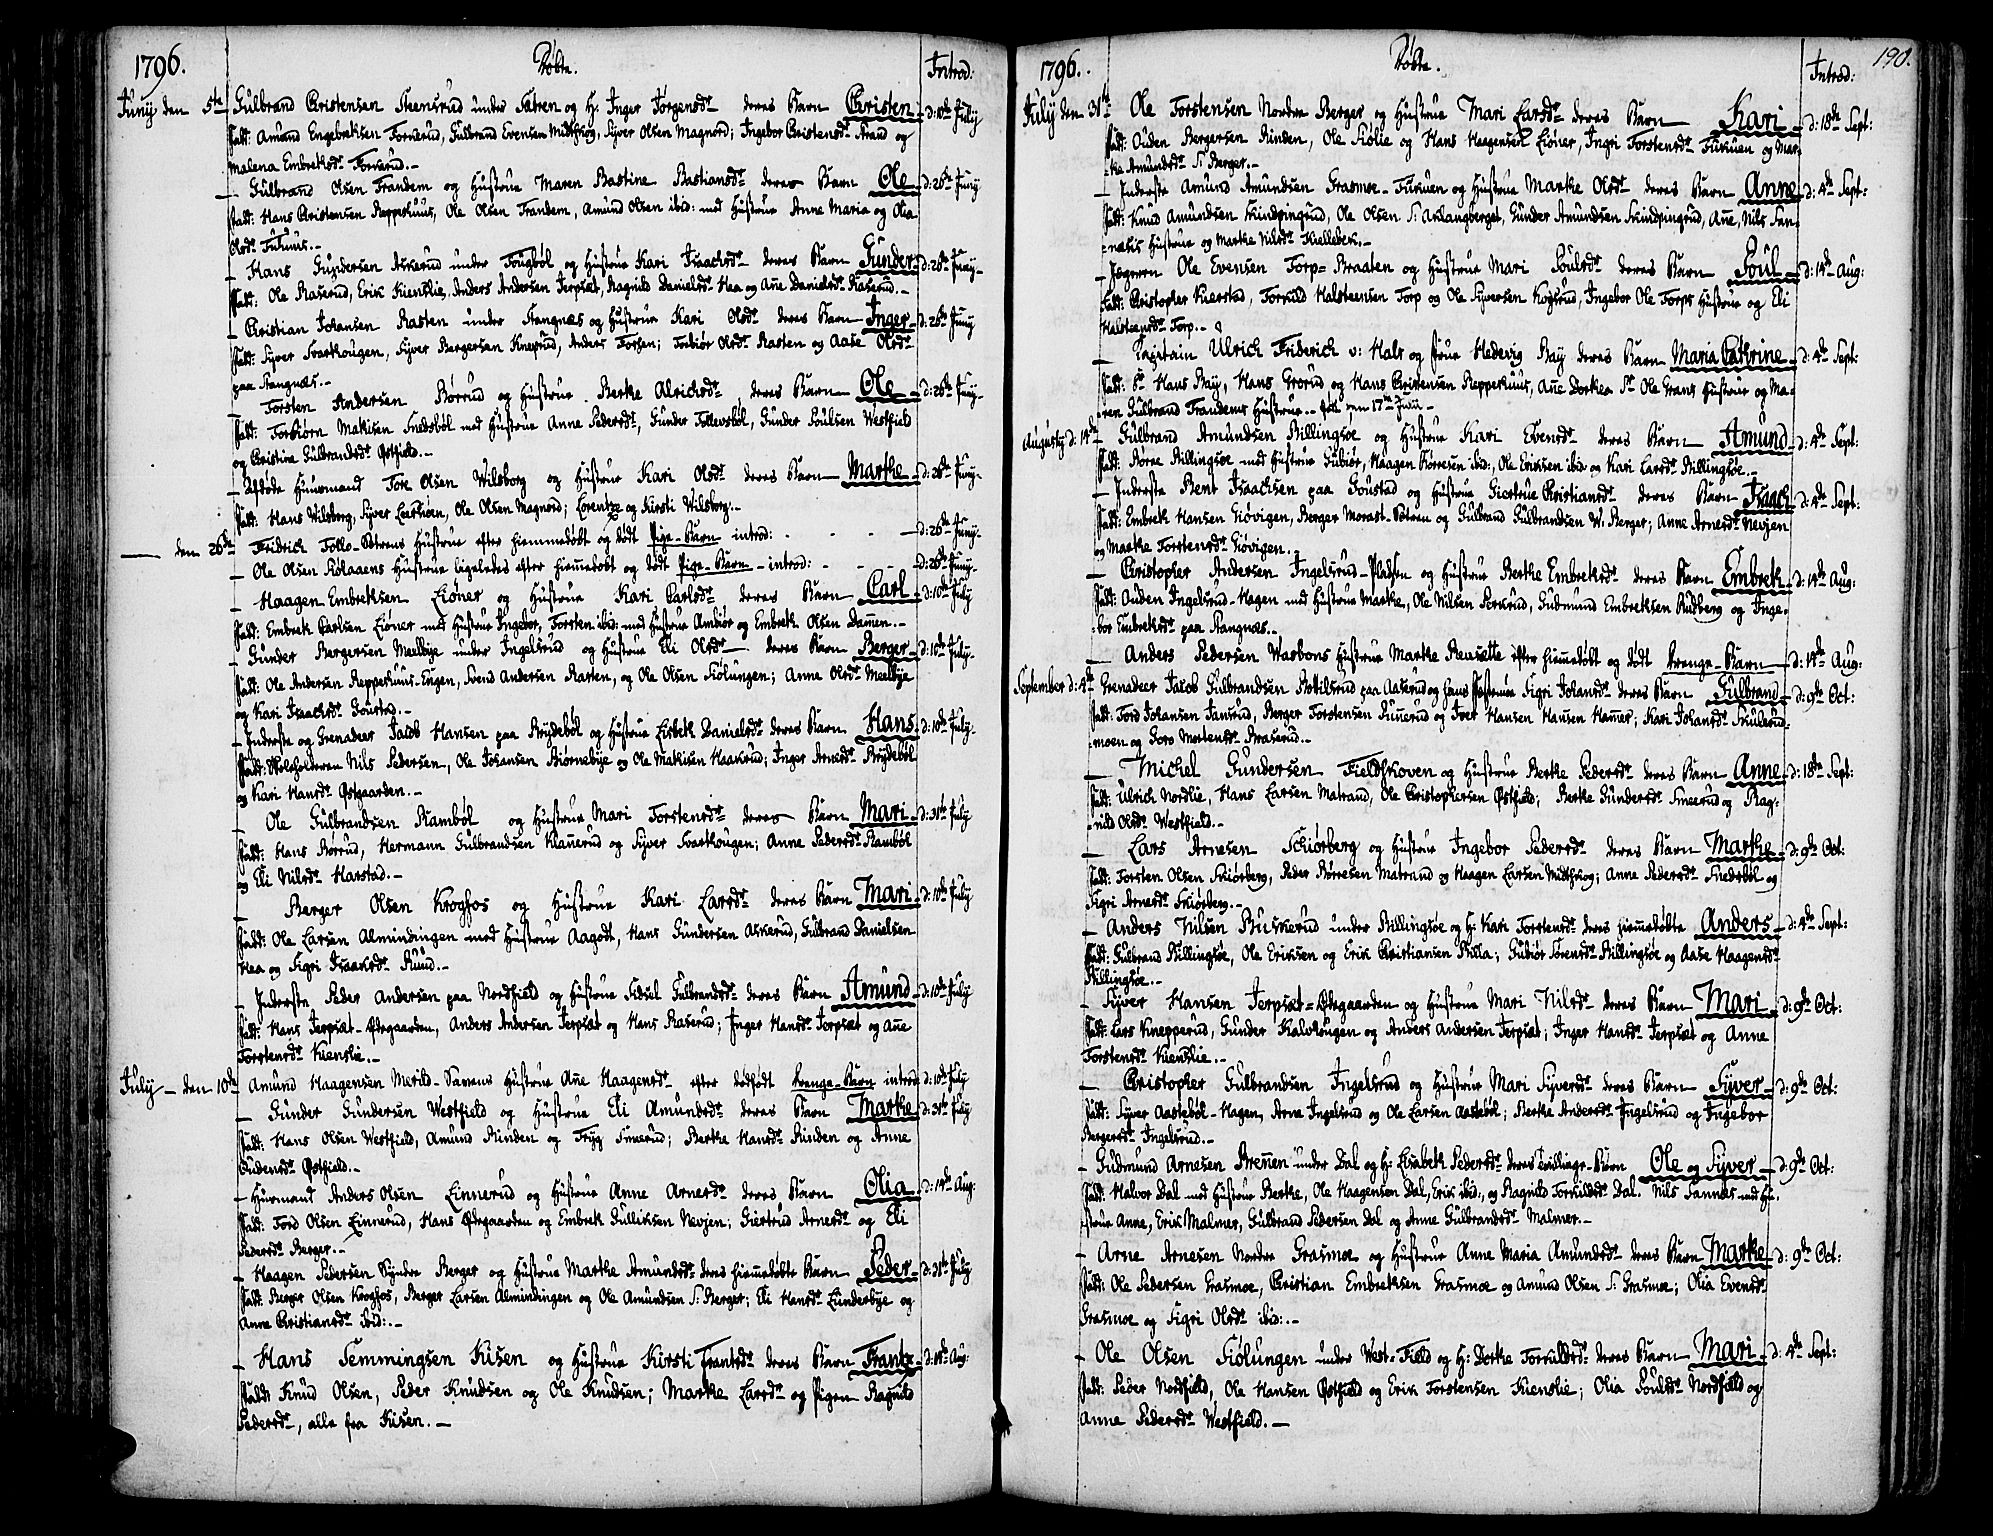 1796. Døbte. Introd:
Juny den 5te Gulbrand Christensen Steensrud under Sætren og H: Inger Jørgensdr deres Barn Christen d: 10de July
Fadd: Amund Engebretsen Fornerud, Gulbrand Evensen Midtskog, Syver Olsen Magnord; Ingebor Christensdr Strand og
Malena Embretsdr Fornerud.
Gulbrand Olsen Trandem og Hustrue Maren Bastine Bastiansdr deres Barn Ole d: 26de Juny
Fadd: Hans Christensen Repperhuus, Ole Olsen Trandem, Amund Olsen ibid: med Hustrue Anne Maria og Olia
Olsdr
Hans Gundersen Askerud under Tougbøl og Hustrue Kari Isaachsdr deres Barn Gunder d: 26de Juny
Fadd: Ole Raserud, Erik Kienslie, Anders Andersen Jerpsæt, Ragnild Danielsdr Haa og Ane Danielsdr Raserud.
Christian Johansen Rasten under Stangnæs og Hustrue Kari Olsdr deres Barn Inger d: 26de Juny
Fadd: Syver Svartkougen, Syver Bergersen Kneprud, Anders Forsen; Torbiør Olsdr Rasten og Aase Olsdr
paa Stangnæs.
Torsten Andersen Børrud og Hustrue Berte Alrichsdr deres Barn Ole d: 26de Juny
Fadd: Torbiørn Mathisen Snedsbøl med Hustrue Anne Pedersdr, Gunder Tollevsbøl, Gunder Poulsen Westfield
og Christine Gulbrandsdr Østfield.
Afdøde Huusmand Tore Olsen Wilsborg og Hustrue Kari Olsdr deres Barn Marthe d: 26de Juny
Fadd: Hans Wilsberg, Syver Leertoen, Ole Olsen Magnord; Lorentze og Kirsti Wilsborg.
den 26de Fridrich Tollo-Sætrens Hustrue efter hiemmedøbt og dødt Pige-Barn introd: d: 26de Juny
Ole Olsen Siølaaens Hustrue ligeledes efter hiemedøbt og dødt Pige-Barn introd: d: 26de Juny
Haagen Embretsen Liøner og Hustrue Kari Carlsdr deres Barn Carl d: 10de July
Fadd: Embret Carlsen Liøner med Hustrue Ingebor, Torsten ibid: med Hustrue Ambiør og Embret Olsen Damen.
Gunder Bergersen Meelbye under Ingelsrud og Hustrue Eli Olsdr deres Barn Berger d: 10de July
Fadd: Ole Andersen Repperhuus-Engen, Svend Andersen Rasten, og Ole Olsen Siølungen; Anne Olsdr Meelbye
og Kari Isaachsdr Goustad.
Inderste og Grenadeer Jacob Hansen paa Brydebøl og Hustrue Lisbeth Danielsdr deres Barn Hans d: 10de July
Fadd: Skoleholderen Nils Pedersen, Ole Johansen Biørnebye og Ole Mathisen Haakrud; Inger Arnesdr Brydebøl
og Kari Hansdr Østgaarden.
Ole Gulbrandsen Stambøl og Hustrue Mari Torstensdr deres Barn Mari d: 31te July
Fadd: Hans Børrud, Hermann Gulbrandsen Klanerud og Syver Svartkougen; Anne Pedersdr Stambøl
og Eli Nilsdr Harstad.
Berger Olsen Krogfos og Hustrue Kari Larsdr deres Barn Mari d: 10de July
Fadd: Ole Larsen Almindingen med Hustrue Aagodt, Hans Gundersen Askerud, Gulbrand Danielsen
Haa og Sigri Isaaksdr Ruud.
Inderste Peder Andersen paa Nordfield og Hustrue Sidsel Gulbrandsdr deres Barn Amund d: 10de July
Fadd: Hans Jerpsæt-Østgaarden, Anders Andersen Jerpsæt og Hans Raserud; Inger Hansdr Jerpsæt og Ane
Torstensdr Kienslie.
July den 10de Amund Haagensen Merild-Sætrens Hustrue Ane Haagensdr efter dødfødt Drenge-Barn introd: d: 10de July
Gunder Gundersen Westfield og Hustrue Eli Amundsdr deres Barn Marthe d: 31te July
Fadd: Hans Olsen Westfield, Amund Rinden og Tryg Smerud; Berthe Hansdr Rinden og Anne
Oudensdr Østfield.
Huusmand Anders Olsen Linnerud og Hustrue Anne Arnesdr deres Barn Olia d: 14de Aug:
Fadd: Tord Olsen Linnerud, Hans Østgaarden og Embret Gulliksen Nevjen; Giertrud Arnesdr og Eli
Pedersdr Berger.
Haagen Pedersen Syndre Berger og Hustrue Marthe Amundsdr deres hiemedøbte Barn Peder d: 31te July
Fadd: Berger Olsen Krogfos, Berger Larsen Almindingen og Ole Amundsen S: Berger; Eli Hansdr Lunderbye og
Anne Christiansdr ibid:
Hans Semmingsen Kisen og Hustrue Kirsti Frantsdr deres Barn Frantz d: 14de Aug:
Fadd: Knud Olsen, Peder Knudsen og Ole Knudsen; Marthe Larsdr og Pigen Ragnild
Pedersdr, alle fra Kisen.
1796. Døbte. Introd: 190.
July den 31te Ole Torstensen Nordre Berger og Hustrue Mari Larsdr deres Barn Kari d: 18de Sept:
Fadd: Ouden Bergersen Rinden, Ole Siølie og Hans Haagensen Liøner, Ingri Torstensdr og Mar-
the Amundsdr S: Berger.
Inderste Amund Amundsen Grasmoe og Hustrue Marthe Olsdr deres Barn Anne d: 4de Sept:
Fadd: Knud Amundsen Skindpingrud, Ole Olsen S: Aklangberget, Gunder Amundsen Skindpingrud, Ane, Nils San-
næsis Hustrue og Marthe Nilsdr Kiellebek.
Jægeren Ole Evensen Torp-Braaten og Hustrue Mari Poulsdr deres Barn Poul d: 14de Aug:
Fadd: Christopher Kierstad, Torkild Halsteensen Torp og Ole Syversen Kogsrud, Ingebor Ole Torps Hustrue og Eli
Halsteensdr Torp.
Capitain Ulrich Friderich v: Hals og Frue Hedevig Bay deres Barn Maria Cathrine d: 4de Sept:
Fadd: Sr Hans Bay, Hans Grorud og Hans Christensen Repperhuus, Ane Dorthea Sr Ole Grans Hustrue og Ma-
ren Gulbrand Trandems Hustrue. fød den 17de Juni
Augusty d: 14de Gulbrand Amundsen Billingsøe og Hustrue Kari Evensdr deres Barn Amund d: 4de Sept:
Fadd: Børre Billingsøe med Hustrue Gubiør, Haagen Børresen ibid:, Ole Eriksen ibid og Kari Larsdr Billingsøe.
Inderste Bent Isaachsen paa Goustad og Hustrue Giertrue Christiansdr deres Barn Isaach d: 4de Sept:
Fadd: Embret Hansen Giøvigen, Berger Morast-Sætren og Gulbrand Gulbrandsen W: Berger; Anne Arnesdr Nevjen
og Marthe Torstensdr Giøvigen.
Christopher Andersen Ingelsrud-Pladsen og Hustrue Berthe Embretsdr deres Barn Embret d: 14de Aug:
Fadd: Ouden Ingelsrud-Hagen med Hustrue Marthe, Ole Nilsen Perkrud, Gudmund Embretsen Rudberg og Inge-
bor Embretsdr paa Stangnæs.
Anders Pedersen Warbons Hustrue Marthe efter hiemedøbt og dødt Drenge-Barn d: 14de Aug:
September d: 4de Grenadeer Jacob Gulbrandsen Bottilsrud paa Aaserud og hans Hustrue Sigri Johansdr deres Barn Gulbrand d: 9de Oct:
Fadd: Tord Johansen Jansrud, Berger Torstensen Runnerud og Iver Hansen Hansen Hamer; Kari Johansdr Skulerud-
moen og Goro Mortensdr Braserud.
Michel Gundersen Fieldskoven og Hustrue Berthe Pedersdr deres Barn Anne d: 18de Sept:
Fadd: Ulrich Nordlie, Hans Larsen Matrand, Ole Christophersen Østfield; Berthe Gundersdr Smeerud og Rag-
nild Olsdr Westfield.
Lars Arnesen Schiørberg og Hustrue Ingebor Pedersdr deres Barn Marthe d: 9de Oct:
Fadd: Torsten Olsen Skiørberg, Peder Børresen Matrand og Haagen Larsen Midtskog; Anne Pedersdr Snedsbøl og
Sigri Arnesdr Skiørberg.
Anders Nilsen Buskerud under Billingsøe og H: Kari Torstensdr deres hiemedøbte Anders d: 4de Sept:
Fadd: Gulbrand Billingsøe, Ole Eriksen og Erik Christiansen Skilla; Gubiør Torensdr Billingsøe og Aase Haagensdr
Billingsøe.
Syver Hansen Jerpsæt-Østgaarden og Hustrue Mari Nilsdr deres Barn Mari d: 9de Oct:
Fadd: Lars Knepperud, Gunder Kalvkougen og Anders Andersen Jerpsæt; Inger Hansdr Jerpsæt og Anne
Torstensdr Kienslie.
Christopher Gulbrandsen Ingelsrud og Hustrue Mari Syversdr deres Barn Syver d: 9de Oct:
Fadd: Syver Aastebøl-Hagen, Arne Ingelsrud og Ole Larsen Aastebøl; Berthe Andersdr Ingelsrud og Ingebor
Bergersdr Ingelsrud.
Gudmund Arnesen Brenen under Dal og H: Lisabeth Pedersdr deres tvillinge-Børn Ole og Syver d: 9de Oct:
Fadd: Halvor Dal med Hustrue Berthe, Ole Haagensen Dal, Erik ibid:, og Ragnild Torkildsdr Dal. Nils Sannæs med Hu-
strue Anne, Erik Malmer, Gulbrand Pedersen Dal og Anne Gulbrandsdr Malmer.
Arne Arnesen Nordre Grasmoe og Hustrue Anne Maria Amundsdr deres Barn Marthe d: 9de Oct:
Fadd: Ole Pedersen Grasmoe, Christian Embretsen Grasmoe og Amund Olsen S: Grasmoe; Olia Evensdr
Grasmoe og Sigri Olsdr ibid:
Ole Olsen Siølungen under West-Field og H: Dorthe Torkildsdr deres Barn Mari d: 4de Sept:
Fadd: Peder Nordfield, Ole Hansen Østfield og Erik Torstensen Kienslie; Olia Poulsdr Nordfield og
Anne Pedersdr Westfield.